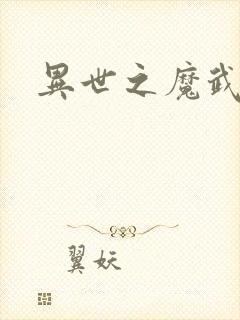 異世之魔武
翼妖